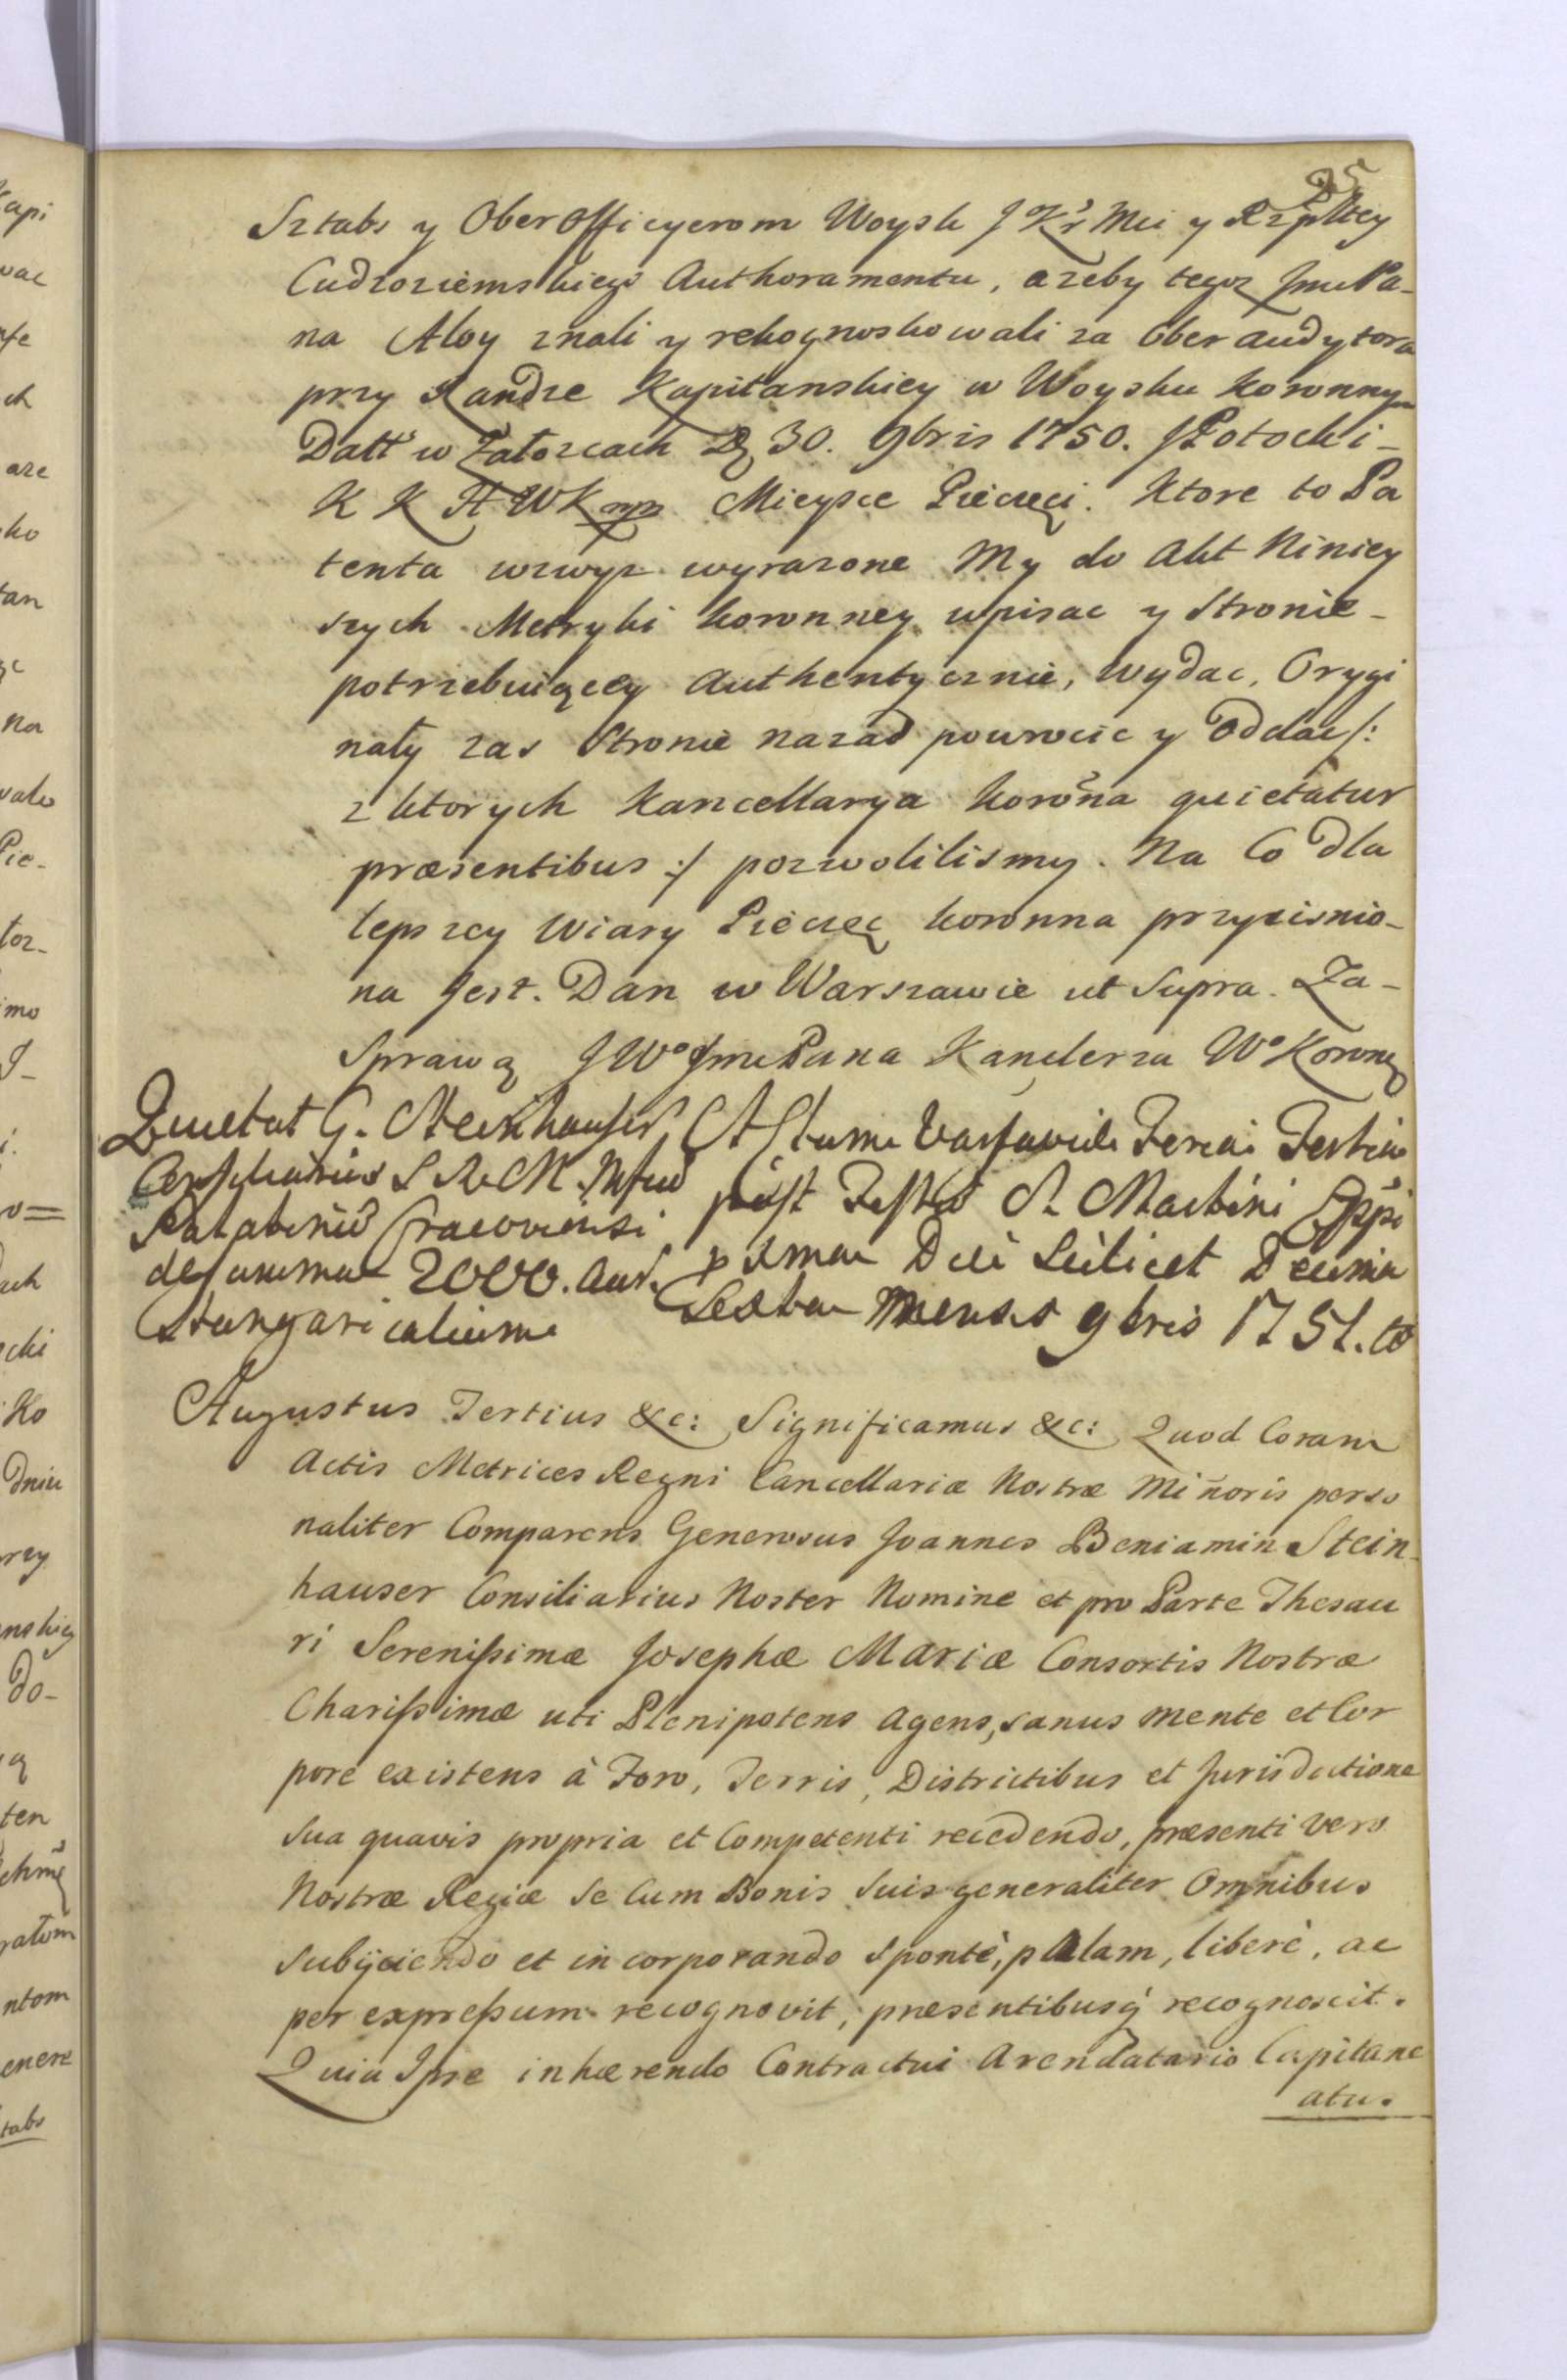 25
Sztabs y Oberofficyerom Woysk J Kr Mci y Rzpltey
Cudzoziemskiego Authoramentu, azeby tegoz JmcPa-
na Aloy znali y rekognoskowali za Oberaudytora
przy Randze Kapitanskiey w Woysku koronnym
Datt w Załozcach D 30. 9bris 1750. JPotocki-
K K H W K mp Mieysce Pieczęci. Ktore to Pa
tenta wzwyz wyrazone My do Akt Niniey
szych Metryki koronney wpisac y Stronie-
potrzebuiącey Authentycznie, wydac, Orygi
nały zas Stronie nazad powrocic y Oddac /:
z ktorych Kancellarya koroña quietatur
præsentibus :/ pozwolilismy. Na Co dla
lepszey Wiary Pieczęc koronna przycisnio-
na Jest. Dan w Warszawie ut Supra. Za-
Sprawą JWo JmcPana Kanclerza Wo Koronę
Quietat G. Steinhauser
Consiliarius S R M.
Palatinũ Cracoviensi
de summa 2000. Aur.
Hungaricalium
Actum Varsaviæ Feria Tertia
post Festũ S. Martini Eppi
pxima Die Scilicet Decima
Sexta Mensis 9bris 1751.
Augustus Tertius &c: Significamus &c: Quod Coram
Actis Metrices Regni Cancellariæ Nostræ Miñoris perso
naliter Comparens Generosus Joannes Beniamin Stein-
hauser Consiliarius Noster Nomine et pro Parte Thesau
ri Serenissimæ Josephæ Mariæ Consortis Nostræ
Charissimæ uti Plenipotens Agens, sanus mente et Cor
pore existens à Foro, Terris, Districtibus et Jurisdictione
sua quavis propria et Competenti recedendo, præsenti vero
Nostræ Regiæ se Cum Bonis suis generaliter Omnibus
subijciendo et incorporando sponte, palam, libere, ac
per expressum recognovit, præsentibusq recognoscit.
Quia Ipse inhærendo Contractui Arendatario Capitane
atus